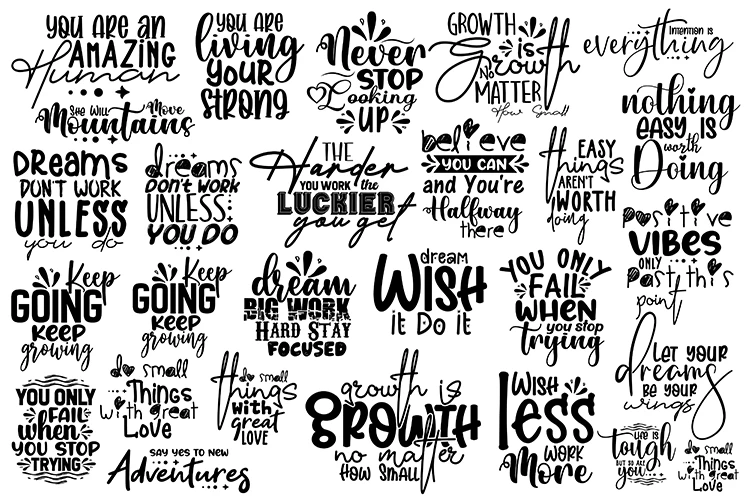 YOU ARE AN
AMAZING
Human
She Will Move
Mountains
YOU ARE
living
YOUR
STRONG
Never
STOP
Looking
UP
GROWTH
is
Growth
NO
MATTER
How Small
INTENTION IS
everything
nothing
EASY IS
worth
Doing
DReams
DON'T WORK
UNLESS
you do
dreams
DON'T WORK
UNLESS
YOU DO
THE
Harder
YOU WORK the
LUCKIER
you get
believe
YOU CAN
and You're
Halfway
there
EASY
things
AREN'T
WORTH
doing
positive
VIBES
ONLY
past this
point
Keep
GOING
KEEP
growing
Keep
GOING
KEEP
growing
dream
BIG WORK
HARD STAY
FOCUSED
dream
WISH
it Do it
YOU ONLY
FAIL
WHEN
you stop
trying
LET YOUR
dreams
BE YOUR
wings
YOU ONLY
FAIL
when
YOU STOP
TRYING
do small
Things
with great
Love
do small
things
WITH
great
LOVE
SAY YES TO NEW
Adventures
growth is
GROWTH
no matter
HOW SMALL
WISH
less
WORK
More
LIFE IS
tough
BUT SO ARE
YOU
do small
Things
with great
Love